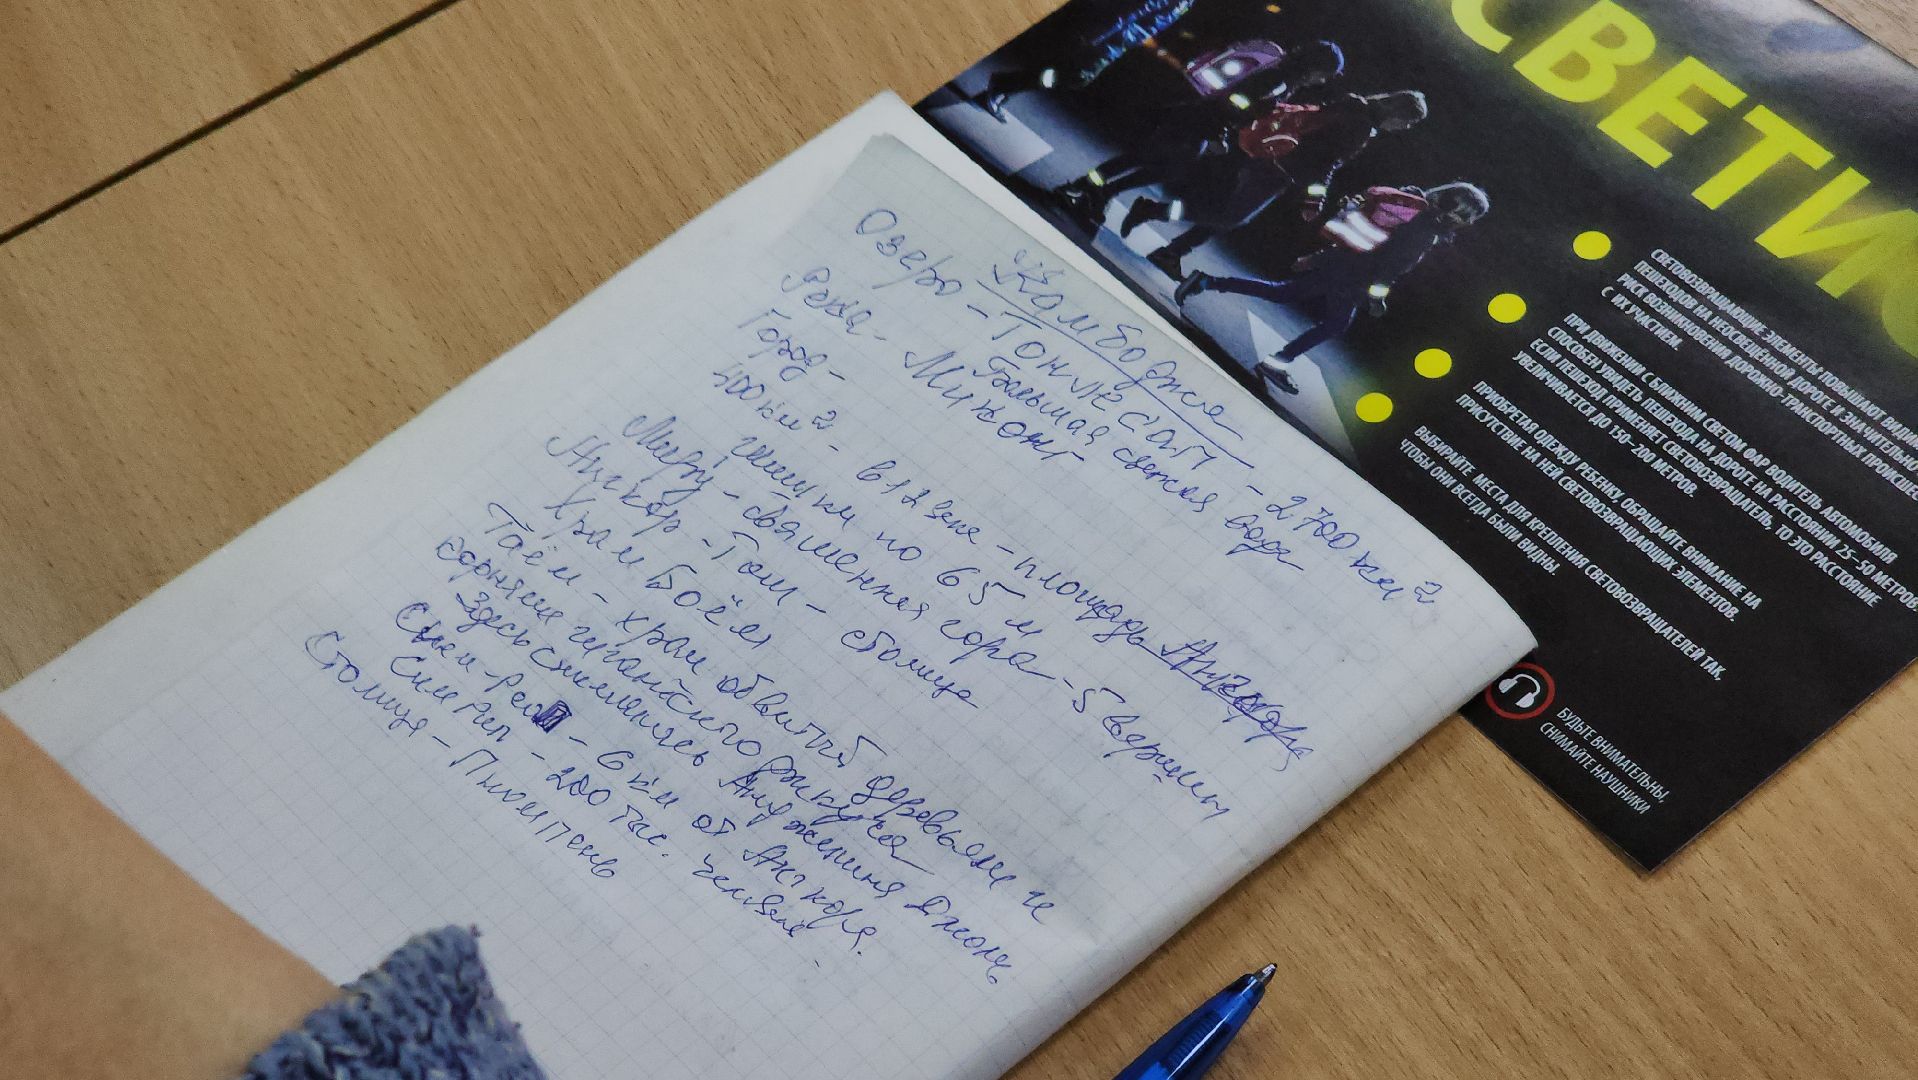 Камбоджа
Озеро – Тонлесап – 2700 км²
Большая свежая вода
Река – Миконг
Город –
400 км² – в 12 веке – площадь Ангкора
шишки по 65 м
Меру – священная гора – 5 вершин
Ангкор – Том – столица
Храм Боём
Таём – храм обвитый деревьями и
корнями гигантского фикуса
Здесь снималась Анджелина Джоль
6 км от Ангкора.
Сием Рип – 200 тыс. человек.
Столица – Пномпень
СВЕТИ
СВЕТОВОЗВРАЩАЮЩИЕ ЭЛЕМЕНТЫ ПОВЫШАЮТ
ПЕШЕХОДОВ НА НЕОСВЕЩЁННОЙ ДОРОГЕ И ЗНАЧИТЕЛЬНО
РИСК ВОЗНИКНОВЕНИЯ ДОРОЖНО-ТРАНСПОРТНЫХ
С ИХ УЧАСТИЕМ.
ПРИ ДВИЖЕНИИ С БЛИЖНИМ СВЕТОМ ФАР ВОДИТЕЛЬ АВТОМОБИЛЯ
СПОСОБЕН УВИДЕТЬ ПЕШЕХОДА НА ДОРОГЕ НА РАССТОЯНИИ 25–50 МЕТРОВ
ЕСЛИ ПЕШЕХОД ПРИМЕНЯЕТ СВЕТОВОЗВРАЩАТЕЛЬ, ТО ЭТО РАССТОЯНИЕ
УВЕЛИЧИВАЕТСЯ ДО 150–200 МЕТРОВ.
ПРИОБРЕТАЯ ОДЕЖДУ РЕБЕНКУ, ОБРАЩАЙТЕ ВНИМАНИЕ НА
ПРИСУТСТВИЕ НА НЕЙ СВЕТОВОЗВРАЩАЮЩИХ ЭЛЕМЕНТОВ.
ВЫБИРАЙТЕ МЕСТА ДЛЯ КРЕПЛЕНИЯ СВЕТОВОЗВРАЩАТЕЛЕЙ ТАК,
ЧТОБЫ ОНИ ВСЕГДА БЫЛИ ВИДНЫ.
БУДЬТЕ ВНИМАТЕЛЬНЫ,
СНИМАЙТЕ НАУШНИКИ